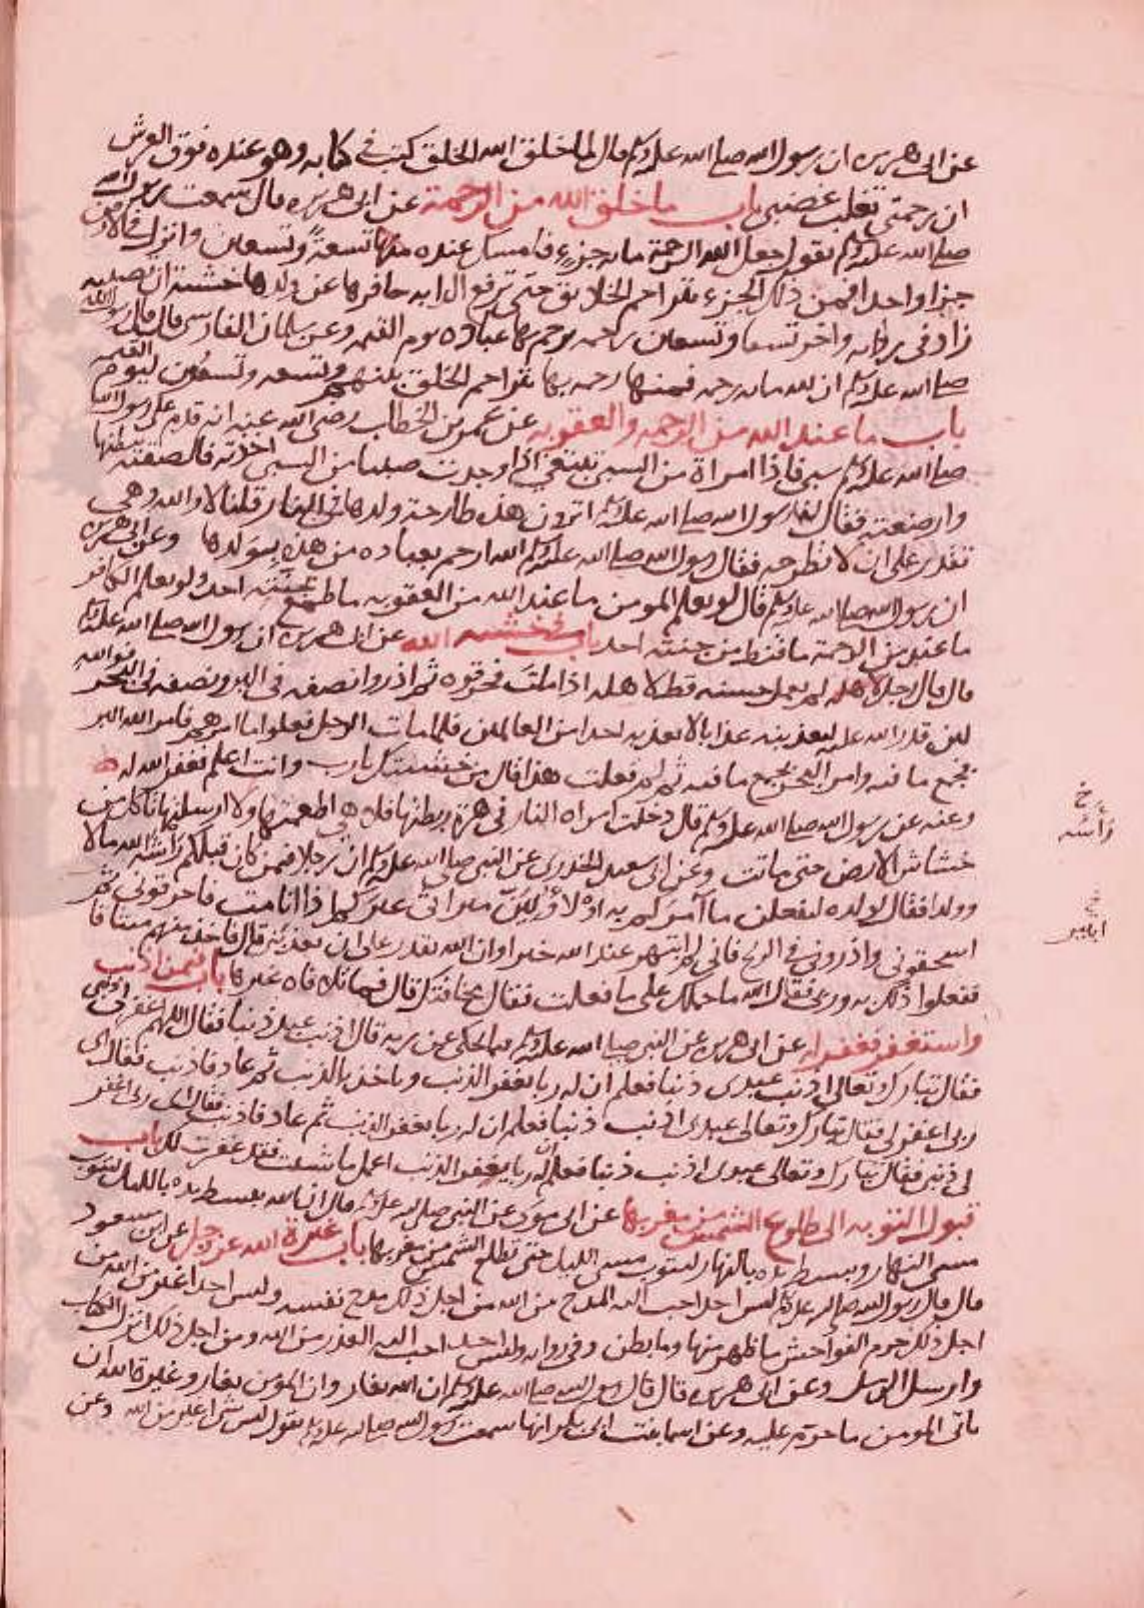 عن ابى هريره ان رسول الله صلى الله عليه وسلم قال لما خلق الله الخلق كتب في كتابه وهو عنده فوق العرش
ان رحمتى تغلب غضبى باب ما خلق الله من الرحمة عن ابى هريره قال سمعت رسول الله
صلى الله عليه وسلم يقول جعل الله الرحمة مايه جزء فامسك عنده منها تسعةً وتسعين وانزل في الارض
جزا واحدا فمن ذلك الجزء يتراحم الخلايق حتى ترفع الدابه حافرها عن ولدها خشية ان تصيبه
زاد فى روايه واخر تسعا وتسعين رحمه يرحم بها عباده يوم القيمه وعن سلمان الفارسى قال قال رسول الله
صلى الله عليه وسلم ان لله مايه رحمه فمنها رحمه بها يتراحم الخلق بينهم وتسعه وتسعون ليوم القيمه
باب ما عند الله من الرحمه والعقوبه عن عمر بن الخطاب رضى الله عنه انه قدم على رسول الله
صلى الله عليه وسلم سبى فاذا امراة من السبى تبتغى اذا وجدت صبيا من السبى اخذته فالصقته ببطنها
وارضعته فقال لنا رسول الله صلى الله عليه وسلم اترون هذه طارحة ولدها فى النار قلنا لا والله وهى
تقدر على ان لا تطرحه فقال رسول الله صلى الله عليه وسلم الله ارحم بعباده من هذه بولدها وعن ابى هريره
ان رسول الله صلى الله عليه وسلم قال لو يعلم المومن ما عند الله من العقوبه ما طمع بجنته احد ولو يعلم الكافر
ما عند الله من الرحمة ما قنط من جنته احد باب فى خشيه الله عن ابى هريره ان رسول الله صلى الله عليه وسلم
قال قال رجل لاهله لم يعمل حسنه قط لاهله اذا مات فحرقوه ثم اذروا نصفه فى البر ونصفه فى البحر فوالله
لين قدر الله عليه ليعذبنه عذابا لا يعذبه احدا من العالمين فلما مات الرجل فعلوا ما امرهم فامر الله البر
فجمع ما فيه وامر البحر فجمع ما فيه ثم قال لم فعلت هذا قال من خشيتك يا رب وانت اعلم فغفر الله له
وعنه عن رسول الله صلى الله عليه وسلم قال دخلت امراه النار فى هرة ربطتها فلا هى اطعمتها ولا ارسلتها تاكل من
خشاش الارض حتى ماتت وعن ابى سعيد الخدرى عن النبى صلى الله عليه وسلم ان رجلا فيمن كان قبلكم راشه الله مالا
وولدا فقال لولده لتفعلن ما آمركم به او لاولين ميراثى غيركم اذا انا مت فاحرقونى ثم
اسحقونى واذرونى فى الريح فانى لم ابتهر عند الله خيرا وان الله يقدر على ان يعذبنى قال فاخذ منهم ميثاقا
ففعلوا ذلك به وربى فقال الله ما حملك على ما فعلت فقال مخافتك قال فما تلافاه غيرها باب فيمن اذنب
واستغفر فغفر له عن ابى هريره عن النبى صلى الله عليه وسلم فيما يحكى عن ربه قال اذنب عبد ذنبا فقال اللهم اغفر لى ذنبى
فقال تبارك وتعالى اذنب عبدى ذنبا فعلم ان له ربا يغفر الذنب وياخذ بالذنب ثم عاد فاذنب فقال اى
رب اغفر لى فقال تبارك وتعالى عبدى اذنب ذنبا فعلم ان له ربا يغفر الذنب ثم عاد فاذنب فقال اى رب اغفر
لى ذنبى فقال تبارك وتعالى عبدى اذنب ذنبا فعلم ان له ربا يغفر الذنب اعمل ما شيت فقد غفرت لك باب
قبول التوبه الى طلوع الشمس من مغربها عن ابى موسى عن النبى صلى الله عليه وسلم قال ان الله يبسط يده بالليل ليتوب
مسى النهار ويبسط يده بالنهار ليتوب مسى الليل حتى تطلع الشمس من مغربها باب غيرة الله عز وجل عن ابن مسعود
قال قال رسول الله صلى الله عليه وسلم ليس احد احب اليه المدح من الله من اجل ذلك مدح نفسه وليس احد اغير من الله من
اجل ذلك حرم الفواحش ما ظهر منها وما بطن وفى روايه وليس احد احب اليه العذر من الله ومن اجل ذلك انزل الكتاب
وارسل الرسل وعن ابى هريره قال قال رسول الله صلى الله عليه وسلم ان الله يغار وان المومن يغار وغيرة الله ان
ياتى المومن ما حرم عليه وعن اسما بنت ابى بكر انها سمعت رسول الله صلى الله عليه وسلم يقول ليس شى اغير من الله وعن
رأسه